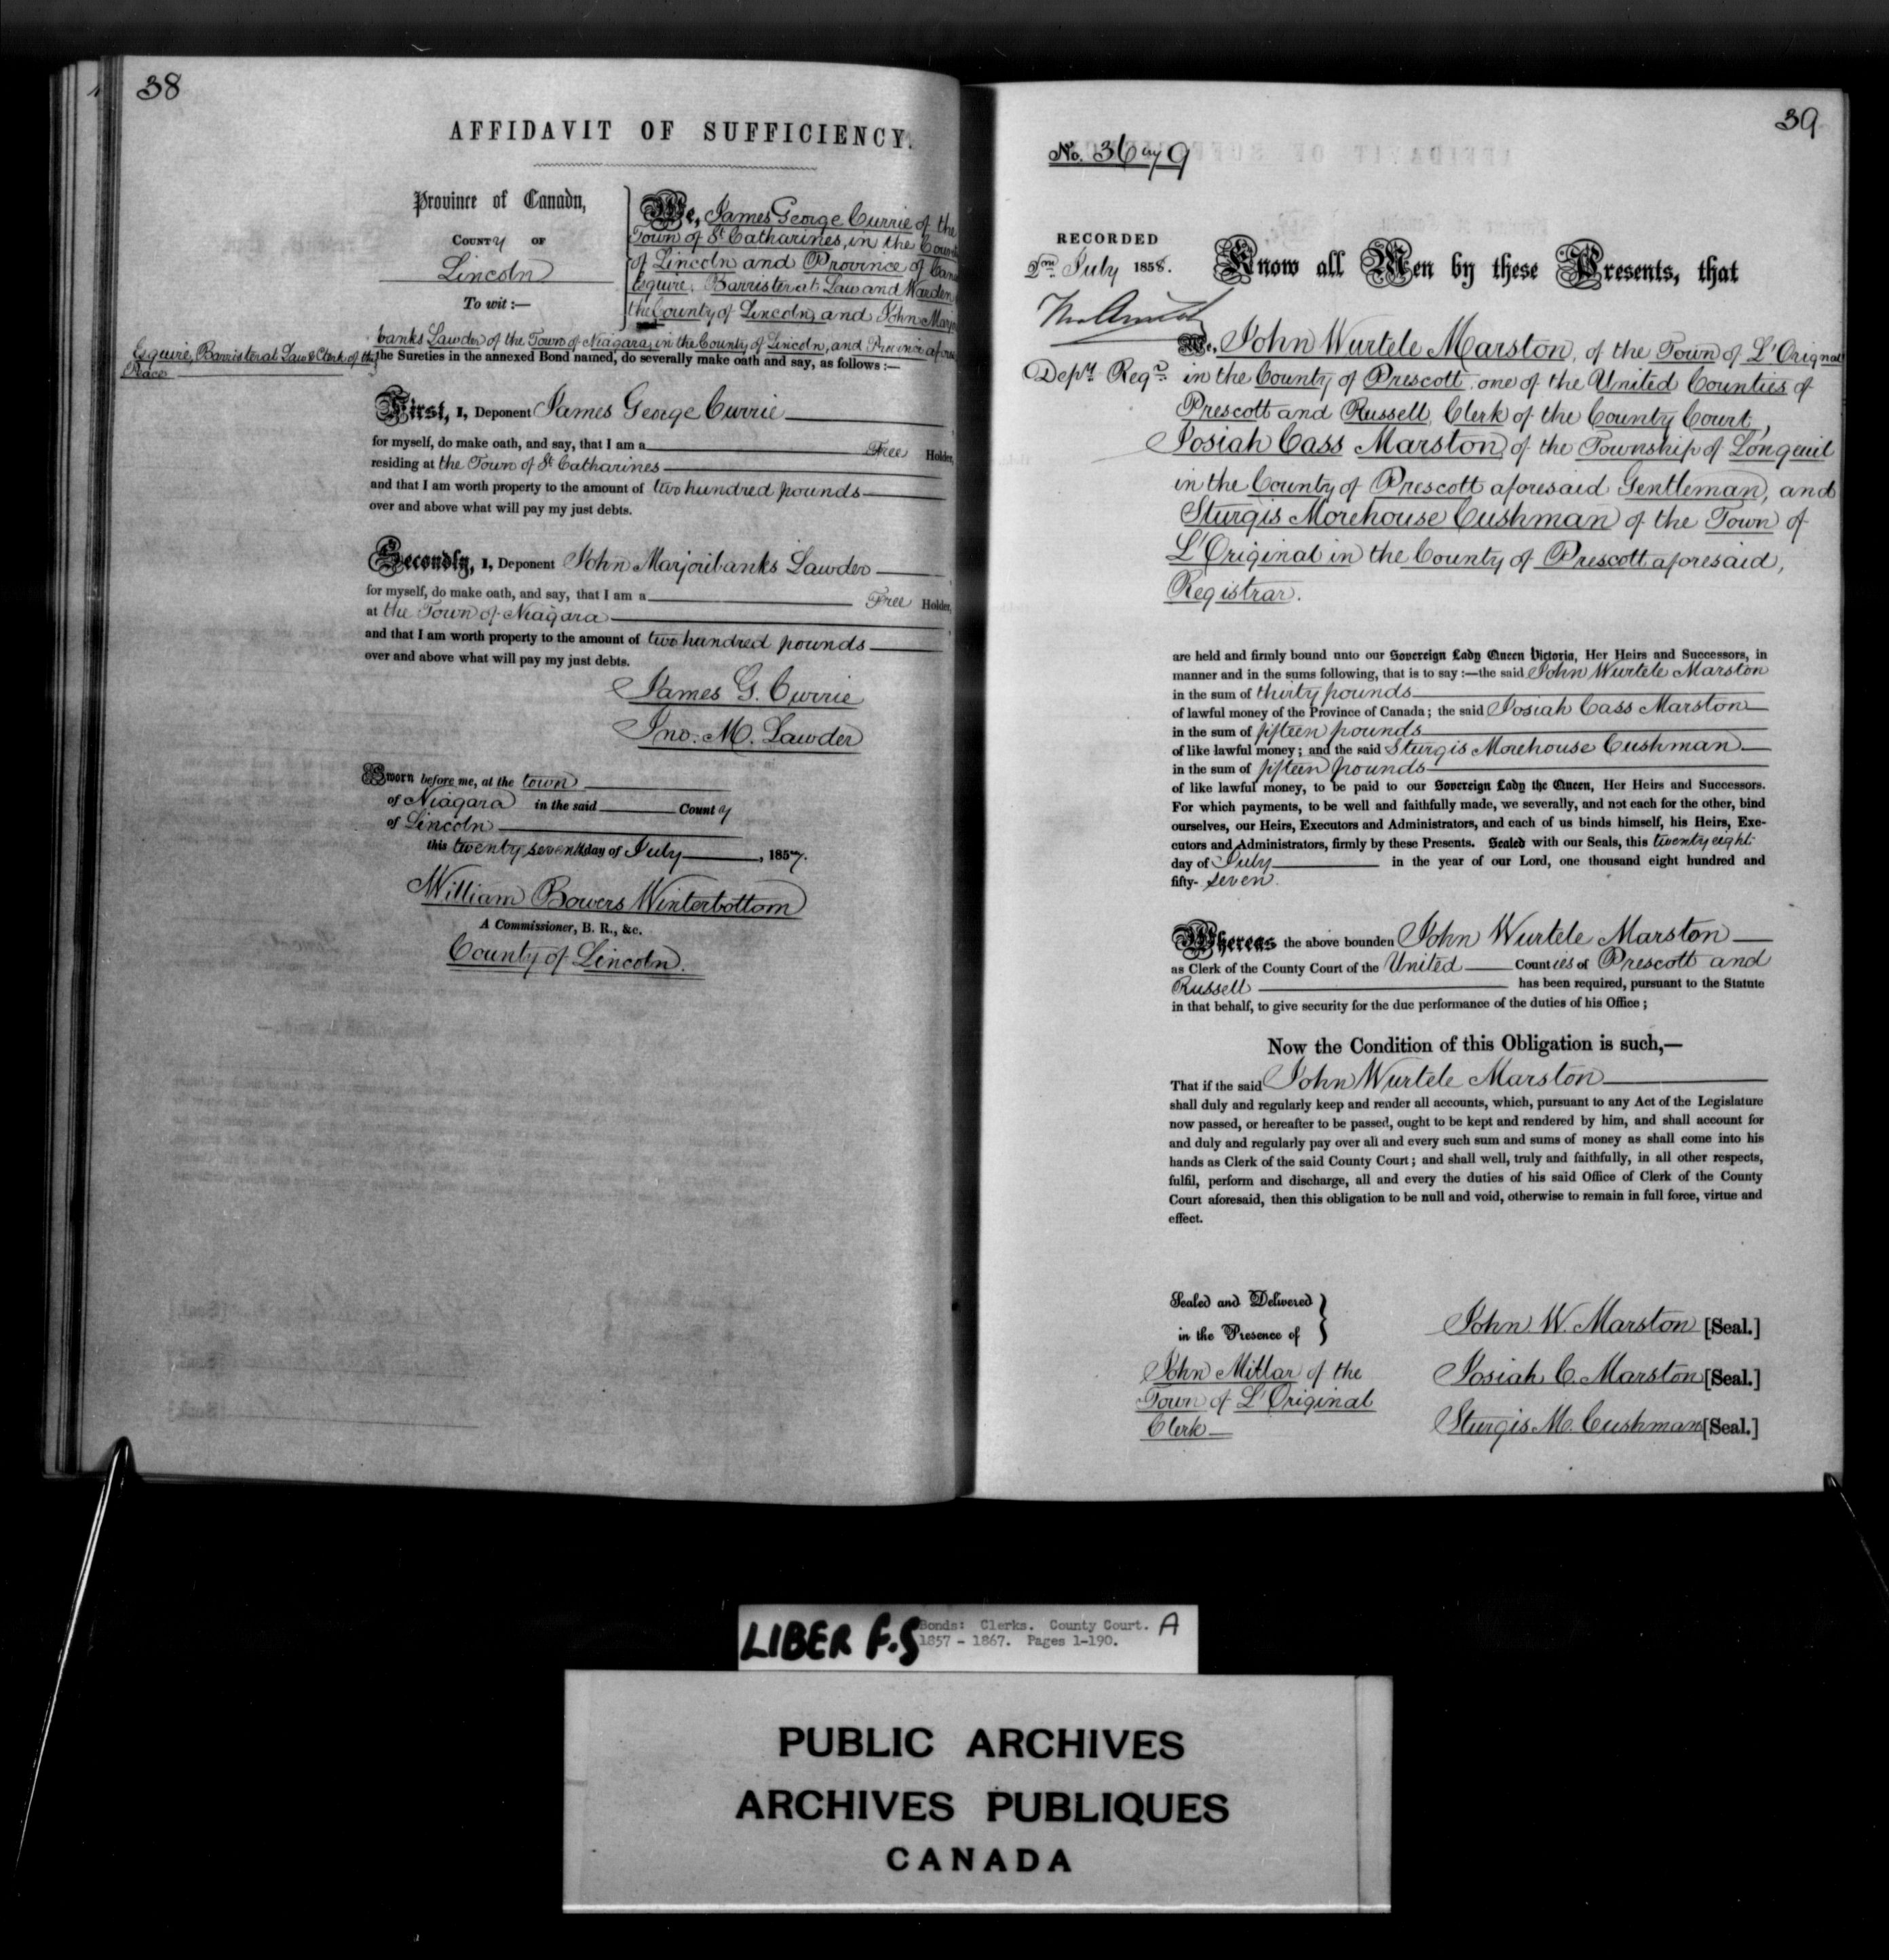 38
AFFIDAVIT OF SUFFICIENCY.
Province of Canada,
COUNTy OF
Lincoln
To wit:—
We, James George Currie of the
Town of St Catharines, in the Coun
of Lincoln and Province of Can
Esquire, Barrister at Law and Warden
the County of Lincoln, and John Marj
banks Lawder of the Town of Niagara, in the County of Lincoln, and Province afore
Esquire, Barrister at Law & Clerk of the
Peace
the Sureties in the annexed Bond named, do severally make oath and say, as follows:—
First, I, Deponent James George Currie
for myself, do make oath, and say, that I am a Free Holder,
residing at the Town of St Catharines
and that I am worth property to the amount of two hundred pounds
over and above what will pay my just debts.
Secondly, I, Deponent John Marjoribanks Lawder
for myself, do make oath, and say, that I am a Free Holder,
at the Town of Niagara
and that I am worth property to the amount of two hundred pounds
over and above what will pay my just debts.
James G. Currie
Jno. M. Lawder
Sworn before me, at the town
of Niagara in the said County
of Lincoln
this twenty seventh day of July, 1857.
William Bowers Winterbottom
A Commissioner, B. R., &c.
County of Lincoln.
39
No. 36 by 9
RECORDED
2nd July 1858.
Depy Regr
Know all Men by these Presents, that
We, John Wurtele Marston, of the Town of L'Orignal
in the County of Prescott one of the United Counties of
Prescott and Russell, Clerk of the County Court,
Josiah Cass Marston of the Township of Longeuil
in the County of Prescott aforesaid Gentleman, and
Sturgis Morehouse Cushman of the Town of
L'Original in the County of Prescott aforesaid,
Registrar.
are held and firmly bound unto our Sovereign Lady Queen Victoria, Her Heirs and Successors, in
manner and in the sums following, that is to say:—the said John Wurtele Marston
in the sum of thirty pounds
of lawful money of the Province of Canada; the said Josiah Cass Marston
in the sum of fifteen pounds
of like lawful money; and the said Sturgis Morehouse Cushman
in the sum of fifteen pounds
of like lawful money, to be paid to our Sovereign Lady the Queen, Her Heirs and Successors.
For which payments, to be well and faithfully made, we severally, and not each for the other, bind
ourselves, our Heirs, Executors and Administrators, and each of us binds himself, his Heirs, Exe-
cutors and Administrators, firmly by these Presents. Sealed with our Seals, this twenty eight
day of July in the year of our Lord, one thousand eight hundred and
fifty- seven.
Whereas the above bounden John Wurtele Marston
as Clerk of the County Court of the United Counties of Prescott and
Russell has been required, pursuant to the Statute
in that behalf, to give security for the due performance of the duties of his Office;
Now the Condition of this Obligation is such,—
That if the said John Wurtele Marston
shall duly and regularly keep and render all accounts, which, pursuant to any Act of the Legislature
now passed, or hereafter to be passed, ought to be kept and rendered by him, and shall account for
and duly and regularly pay over all and every such sum and sums of money as shall come into his
hands as Clerk of the said County Court; and shall well, truly and faithfully, in all other respects,
fulfil, perform and discharge, all and every the duties of his said Office of Clerk of the County
Court aforesaid, then this obligation to be null and void, otherwise to remain in full force, virtue and
effect.
Sealed and Delivered
in the Presence of
John Millar of the
Town of L'Original
Clerk
John W. Marston [Seal.]
Josiah C. Marston [Seal.]
Sturgis M. Cushman [Seal.]
LIBER F.S
Bonds: Clerks. County Court. A
1857 - 1867. Pages 1-190.
PUBLIC ARCHIVES
ARCHIVES PUBLIQUES
CANADA